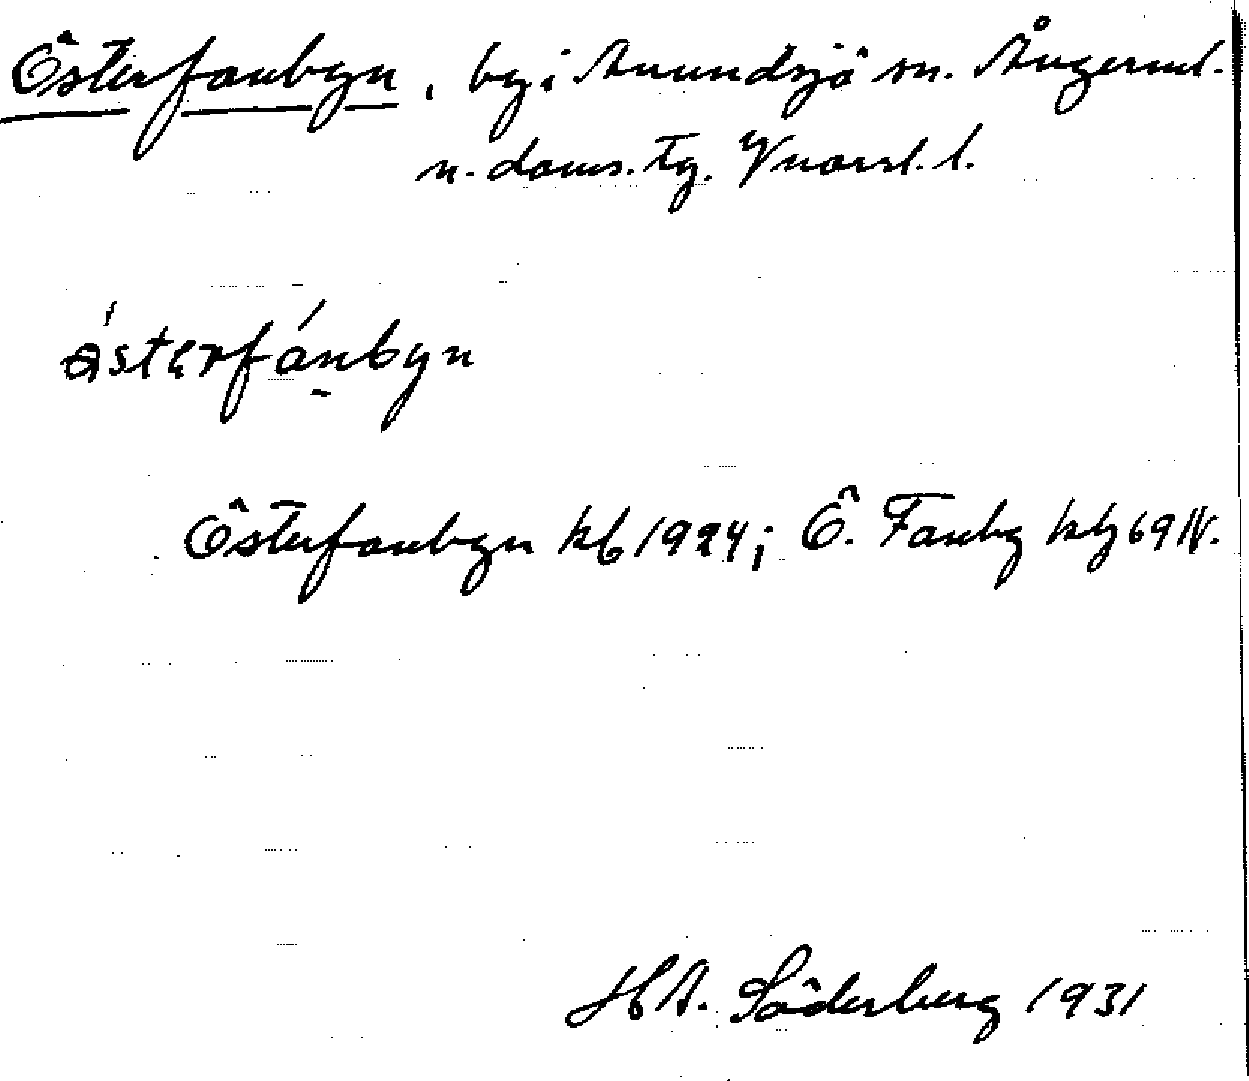 Österfanbyn, by i Anundsjö sn. Ångerml.
n. doms. tg. Vnorrl. l.
ə́stęrfánbyn
Österfanbyn kb 1924; Ö. Fanby kbg 69 IV.
H A. Söderberg 1931